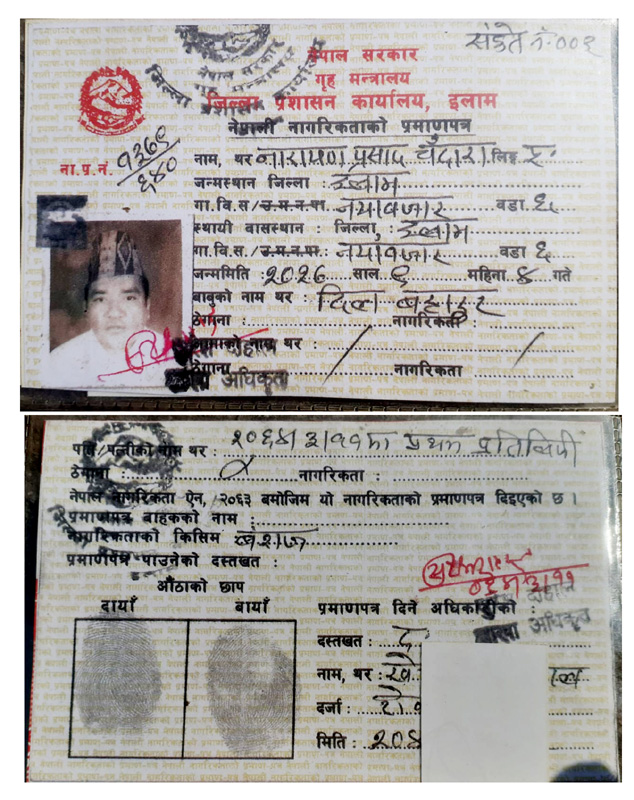 संकेत नं. ००१
नेपाल सरकार
गृह मन्त्रालय
जिल्ला प्रशासन कार्यालय, इलाम
नेपाली नागरिकताको प्रमाणपत्र
ना.प्र.नं. १३६९/६४०
नाम, थर नारायण प्रसाद लिङ्ग
जन्मस्थान जिल्ला : इलाम
गा.वि.स/उ.म.न.पा. नयाबजार वडा ६
स्थायी वासस्थान : जिल्ला, इलाम
गा.वि.स./उ.म.न.पा. नयाबजार वडा ६
जन्ममिति : २०२६ साल ९ महिना ४ गते
बाबुको नाम थर : दिल बहादुर
ठेगाना : नागरिकता :
आमाको नाम थर :
ठेगाना नागरिकता :
अधिकृत
२०६४।३।११मा प्रथम प्रतिलिपी
पति/पत्नीको नाम थर :
ठेगाना नागरिकता :
नेपाल नागरिकता ऐन, २०६३ बमोजिम यो नागरिकताको प्रमाणपत्र दिइएको छ ।
प्रमाणपत्र बाहकको नाम :
नागरिकताको किसिम वंशज
प्रमाणपत्र पाउनेको दस्तखत :
औंठाको छाप
दायाँ बायाँ
प्रमाणपत्र दिने अधिकारीको :
अधिकृत
दस्तखत :
नाम, थर :
दर्जा :
मिति :